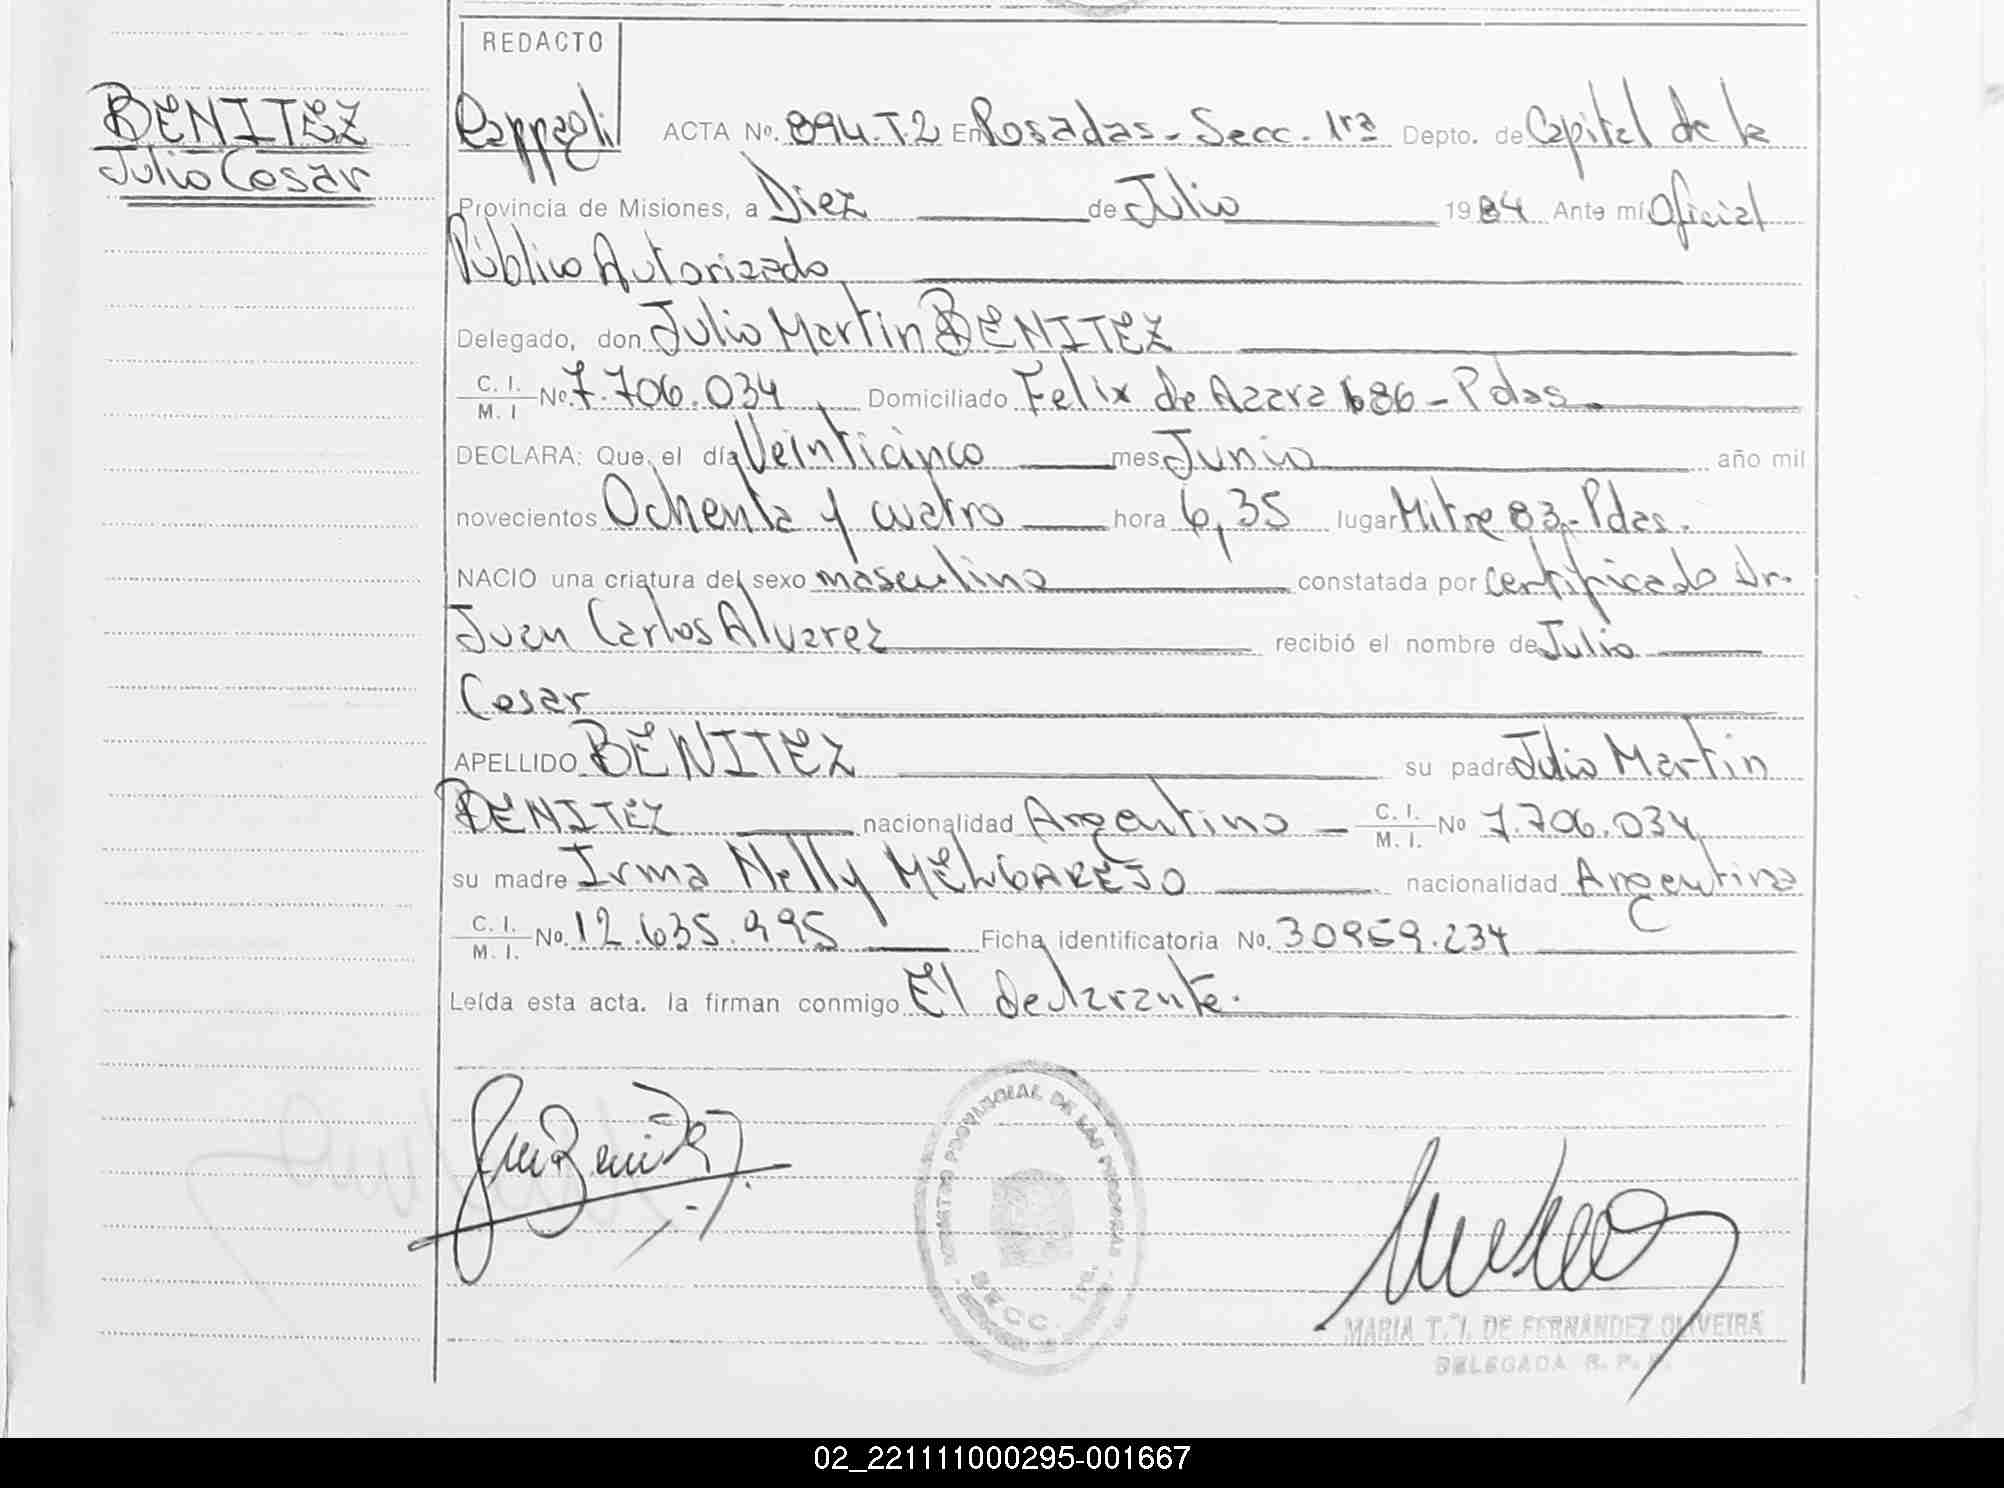 REDACTO
BENITEZ
Julio Cesar
Rappagli ACTA No. 894.T.2 En Posadas - Secc. 1ra Depto. de Capital de la
Provincia de Misiones, a Diez de Julio 1984 Ante mí Oficial
Público Autorizado
Delegado, don Julio Martin BENITEZ
C. I. M. I No. 7.706.034 Domiciliado Felix de Azara 686 - Pdas.
DECLARA: Que, el día Veinticinco mes Junio año mil
novecientos Ochenta y cuatro hora 6,35 lugar Mitre 83 - Pdas.
NACIO una criatura del sexo masculino constatada por certificado Dr.
Juan Carlos Alvarez recibió el nombre de Julio
Cesar
APELLIDO BENITEZ su padre Julio Martin
BENITEZ nacionalidad Argentino - C. I. M. I. No 7.706.034
su madre Irma Nelly MELGAREJO nacionalidad Argentina
C. I. M. I. No. 12.635.995 Ficha identificatoria No. 30959.234
Leída esta acta. la firman conmigo El declarante.
REGISTRO PROVINCIAL DE LAS PERSONAS
SECC. 1ra.
MARIA T. I. DE FERNANDEZ OLIVEIRA
DELEGADA R. P. P.
02_221111000295-001667